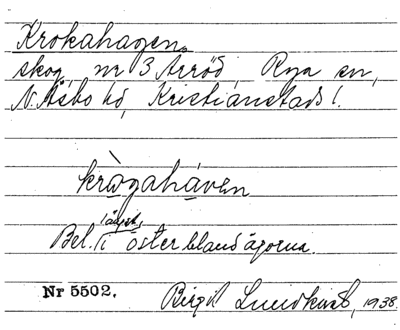 Krokahagen.
skog, nr 3 Arröd, Rya sn,
N. Åsbo hd, Kristianstads l.
kràgahá​ven
längst
Bel. i öster bland ägorna.
Nr 5502.
Birgit Lundkvist, 1938.